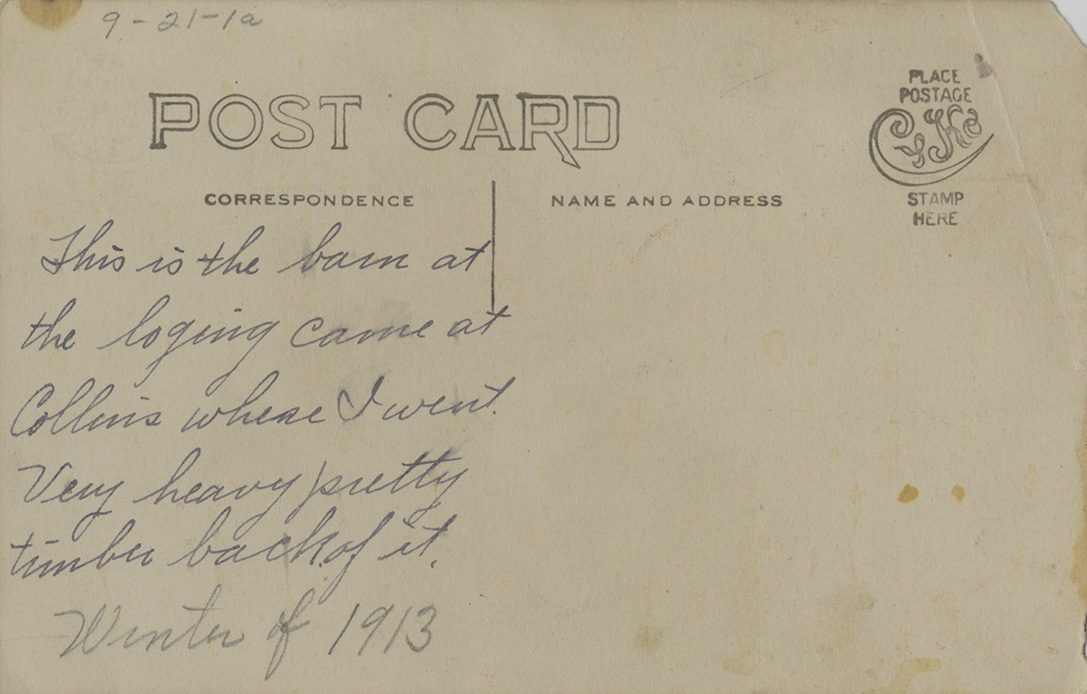 9-21-1a
POST CARD
PLACE
POSTAGE
CYKO
STAMP
HERE
CORRESPONDENCE
NAME AND ADDRESS
This is the barn at
the loging came at
Collins where I went.
Very heavy pretty
timber back of it.
Winter of 1913